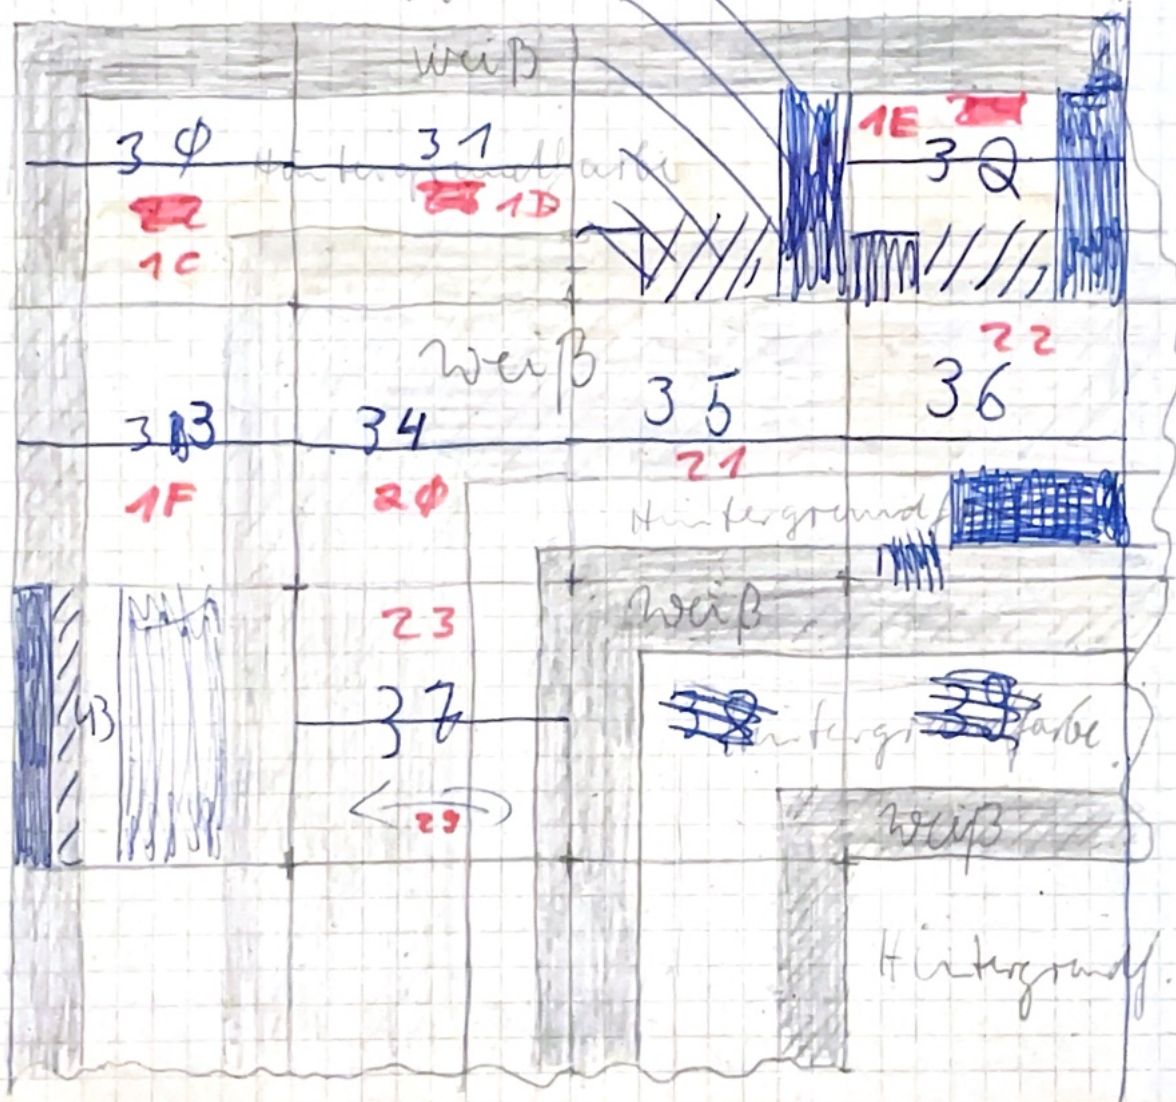 weiß
1E
30 31 32
Hintergrundfarbe
1D
1C
weiß
22
35 36
33 34
21
1F 20
Hintergrundf
23
weiß
37
Hintergrundfarbe
29
weiß
Hintergrundf.